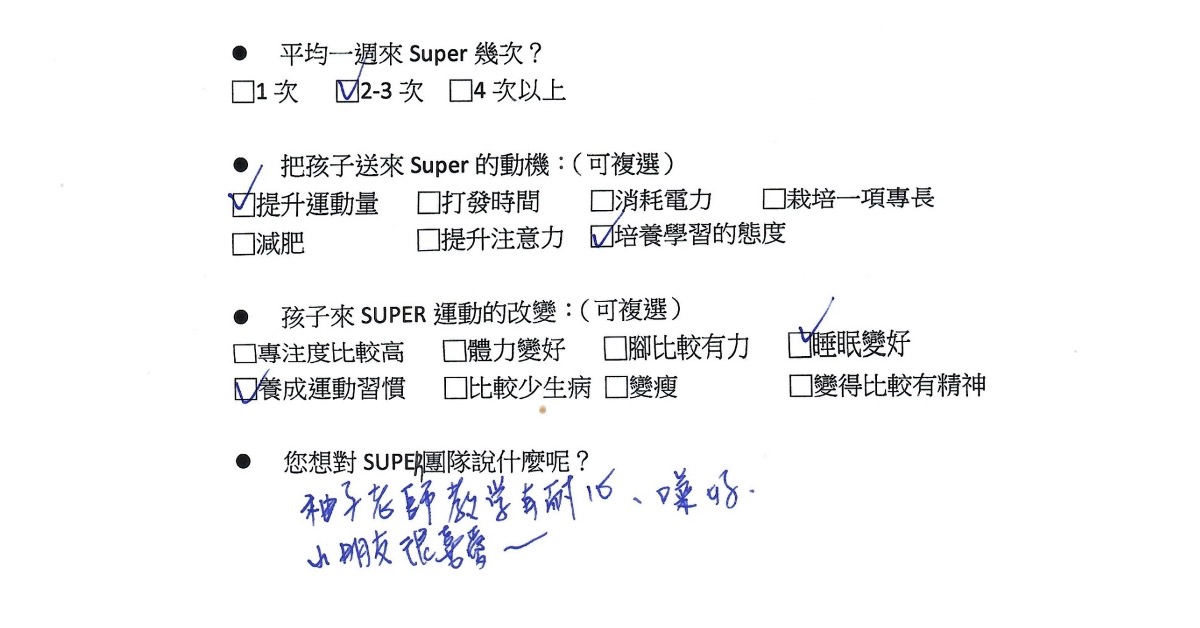 ● 平均一週來 Super 幾次？
□1 次 ☑2-3 次 □4 次以上
● 把孩子送來 Super 的動機：（可複選）
☑提升運動量 □打發時間 □消耗電力 □栽培一項專長
□減肥 □提升注意力 ☑培養學習的態度
● 孩子來 SUPER 運動的改變：（可複選）
□專注度比較高 □體力變好 □腳比較有力 ☑睡眠變好
☑養成運動習慣 □比較少生病 □變瘦 □變得比較有精神
● 您想對 SUPER團隊說什麼呢？
柚子老師教学有耐心、嘆好.
小朋友很喜愛～